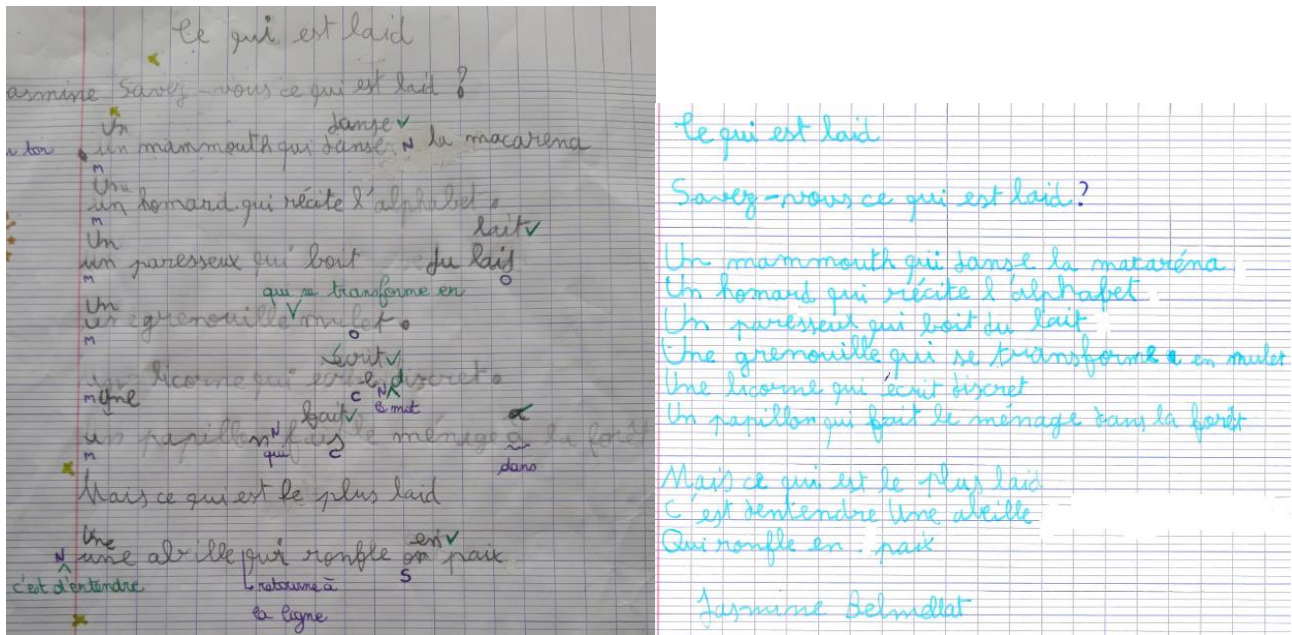 Ce qui est laid
asmine Savez-vous ce qui est laid ?
Un danse ✓
un mammouth qui danse N la macarena
m
Un
un homard qui récite l'alphabet.
m
Un lait ✓
un paresseux qui boit du lais
m O
Un qui se transforme en
grenouille mulet.
m O
écrit ✓
un licorne qui écrie discret.
m Une C N le mot
fait ✓
un papillon fais le ménage a la forêt
m N qui C dans
Mais ce qui est le plus laid
Une en ✓
N une abeille qui ronfle on paix
c'est d'entendre S
retourne à
la ligne
Ce qui est laid
Savez-vous ce qui est laid ?
Un mammouth qui danse la macaréna
Un homard qui récite l'alphabet
Un paresseux qui boit du lait
Une grenouille qui se transforme en mulet
Une licorne qui écrit discret
Un papillon qui fait le ménage dans la forêt
Mais ce qui est le plus laid
C'est dentendre Une abeille
Qui ronfle en paix
Jasmine